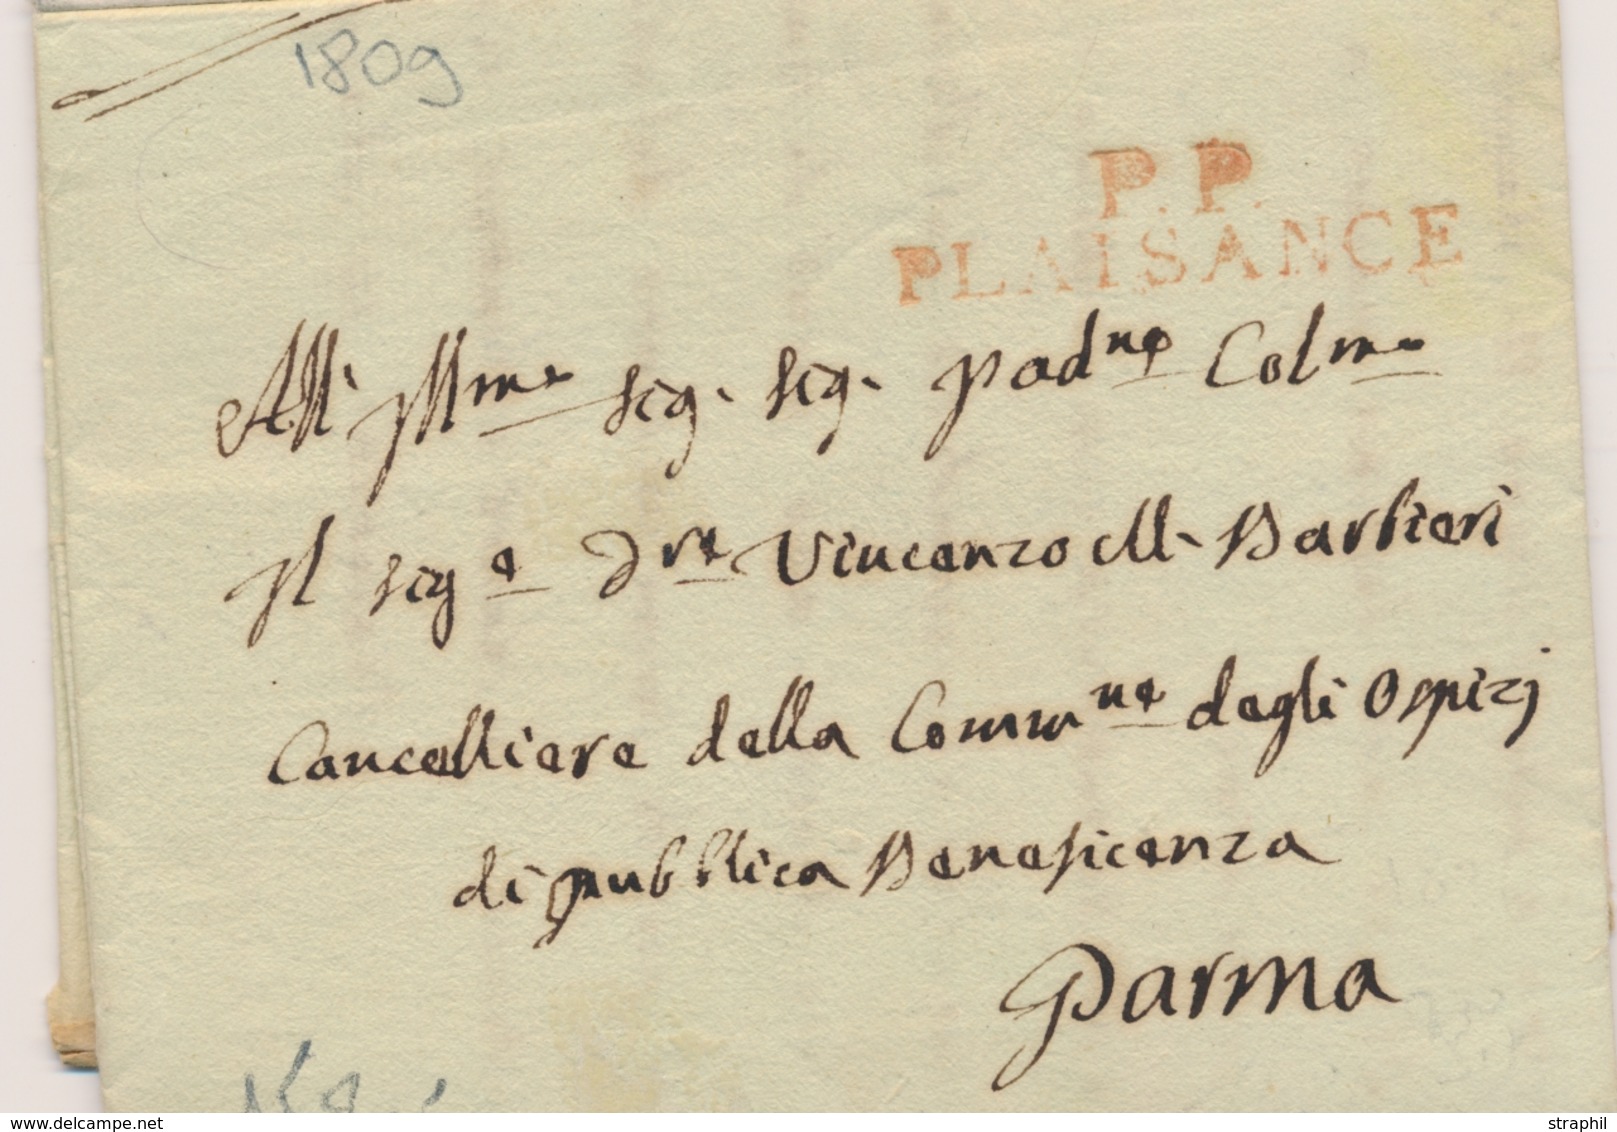 1809
P. P.
PLAISANCE
All' Illmo sig. sig. Padne Colmo
Il sige Dre Vincenzo M. Barbieri
Cancelliere della Commne degli Ospizj
di pubblica Beneficenza
Parma
www.delcampe.net
straphil